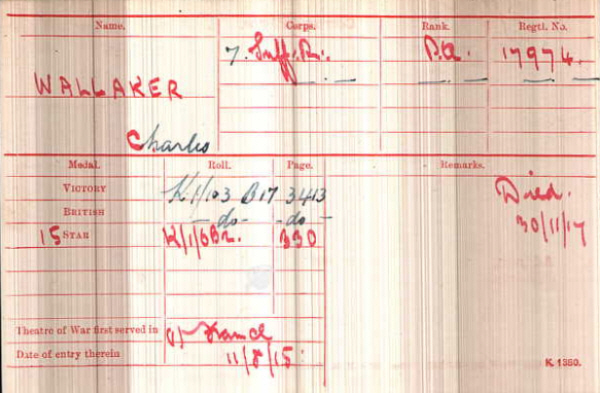 Name. Corps. Rank. Regtl. No.
7. Suff. R. Pte. 17974.
WALLAKER
Charles
Medal. Roll. Page. Remarks.
VICTORY K/1/103 B17 3413 Died.
BRITISH -do- -do- 30/11/17
15 STAR K/1/6 330
Theatre of War first served in (1) France
Date of entry therein 11/8/15.
K 1380.